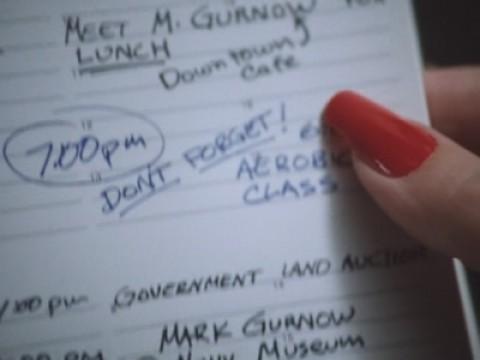 MEET M. GURNOW
LUNCH
Downtown
Cafe
7:00pm
DON'T FORGET!
AEROBIC
CLASS
:00pm GOVERNMENT LAND AUCTION
MARK GURNOW
PM Navy Museum